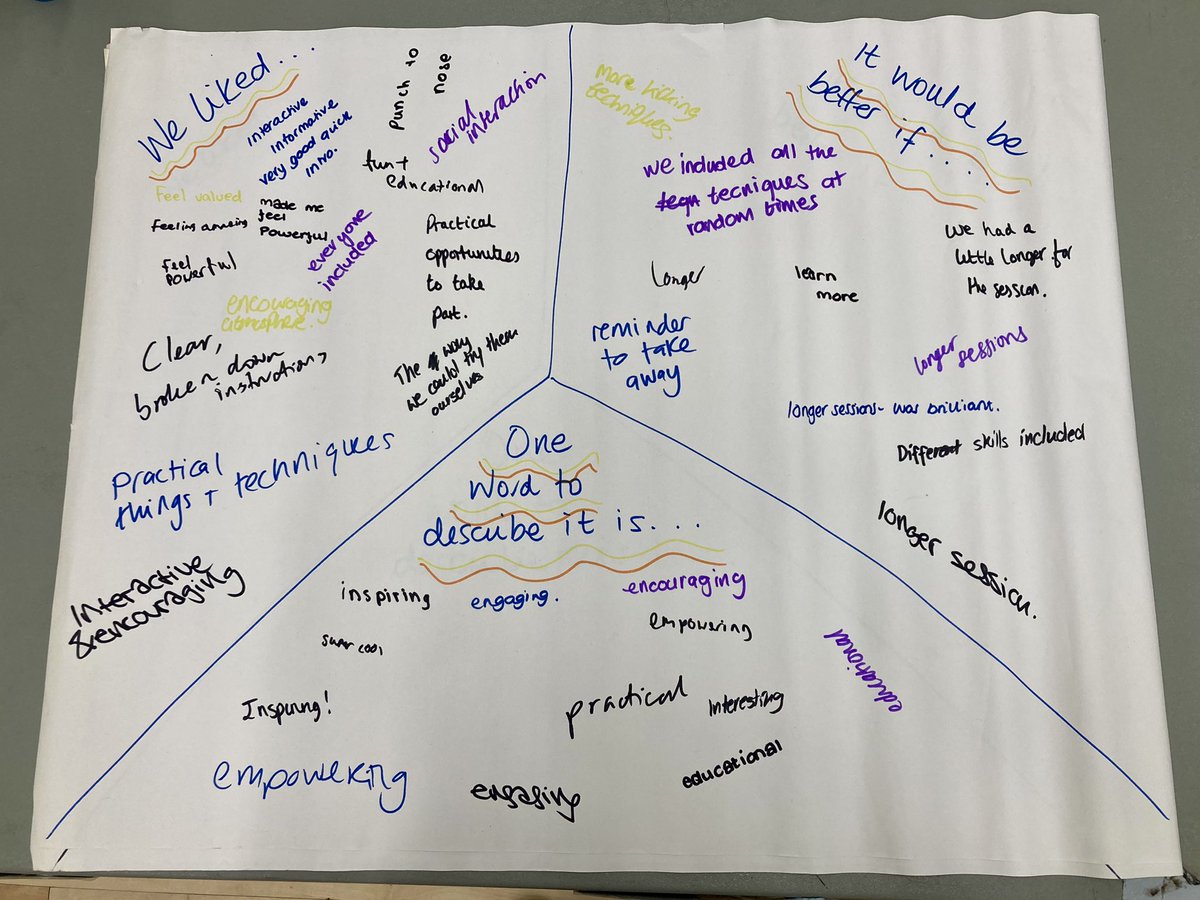 We liked...
Interactive
Informative
very good quick
intro.
Punch to
nose
social
interaction
fun +
educational
Feel valued
Feeling amazing
made me
feel
Powerful
Feel
Powerful
everyone
included
Practical
opportunities
to take
part.
encouraging
atmosphere.
Clear,
broken down
instruction,
The way
we could try them
ourselves
Practical
things + techniques
Interactive
& encouraging
It would be
better if....
More kicking
techniques.
we included all the
tecniques at
random times
We had a
little longer for
the session.
Longer
learn
more
reminder
to take
away
longer
sessions
longer sessions - was brilliant.
Different skills included
longer session.
One
Word to
describe it is...
inspiring
engaging.
encouraging
empowering
super cool
educational
Inspiring!
practical
Interesting
empowering
engaging
educational